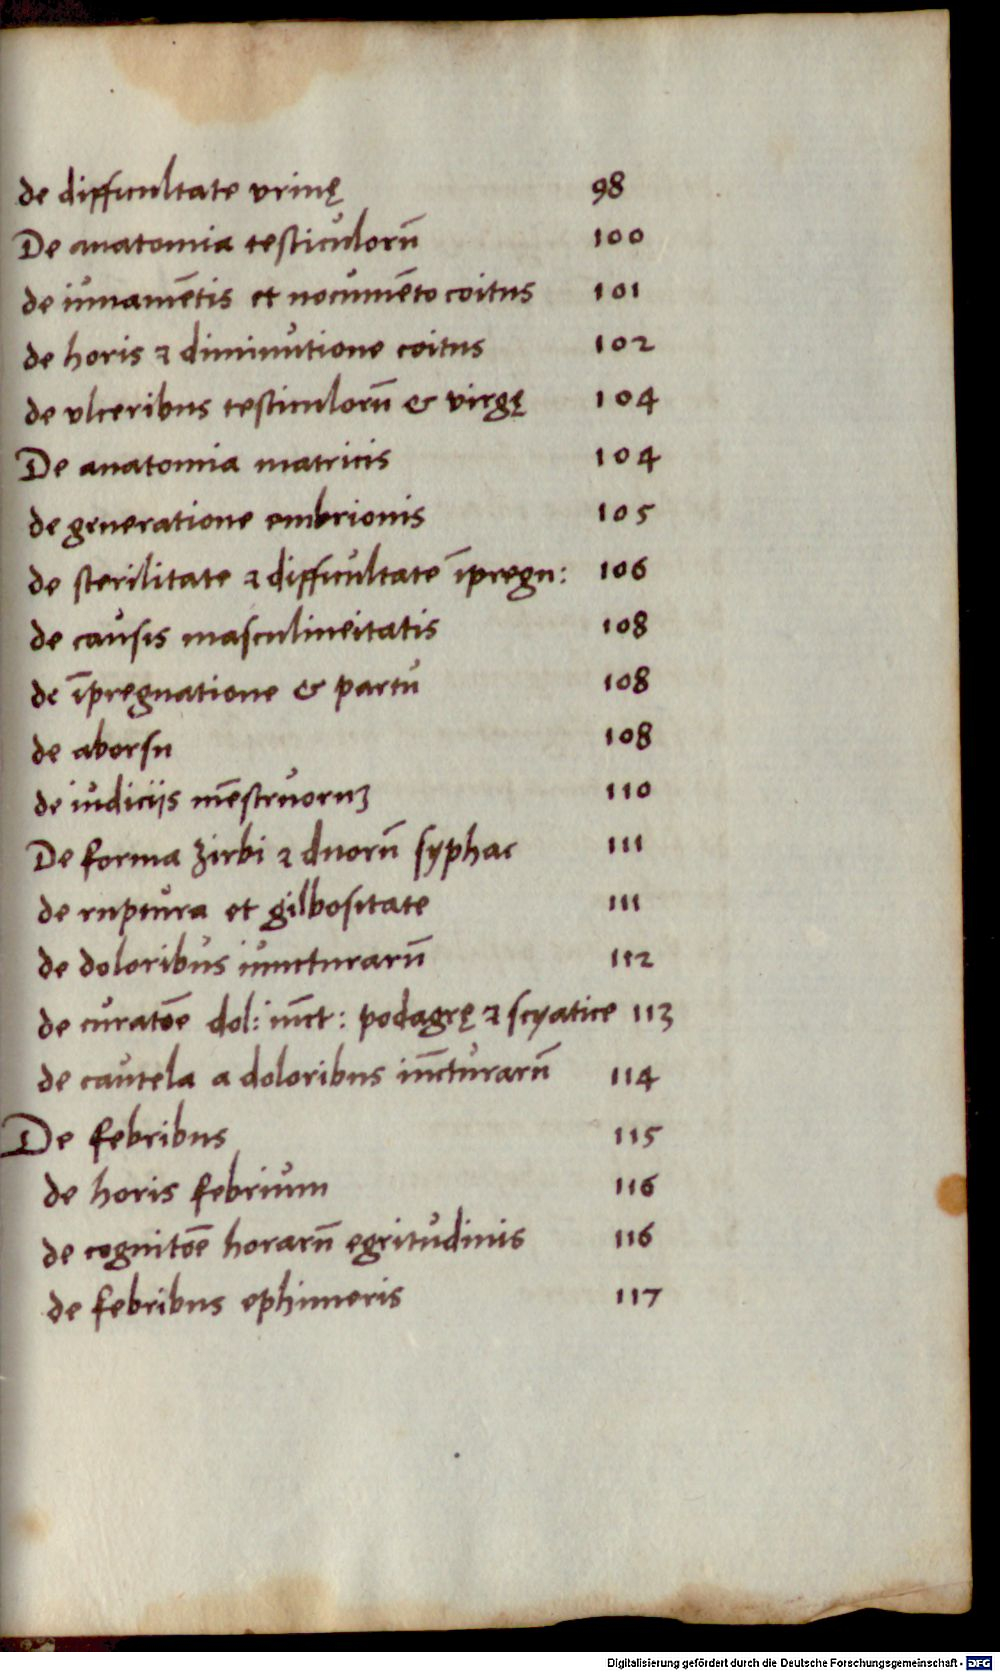 de difficultate vrinę 98
De anatomia testiculorū 100
de iuuamētis et nocumēto coitus 101
de horis ⁊ diminutione coitus 102
de vlceribus testiculorū & virgę 104
De anatomia matricis 104
de generatione embrionis 105
de sterilitate ⁊ difficultate īpregn: 106
de causis masculineitatis 108
de īpregnatione & partu 108
de aborsu 108
de iudiciis mēstruoruꝫ 110
De forma zirbi ⁊ duorū syphac 111
de ruptura et gilbositate 111
de doloribus iuncturarū 112
de curatōe dol: iūct: podagrę ⁊ scyatice 113
de cautela a doloribus iūcturarū 114
De febribus 115
de horis febrium 116
de cognitōe horarū egritudinis 116
de febribus ephimeris 117
Digitalisierung gefördert durch die Deutsche Forschungsgemeinschaft - DFG